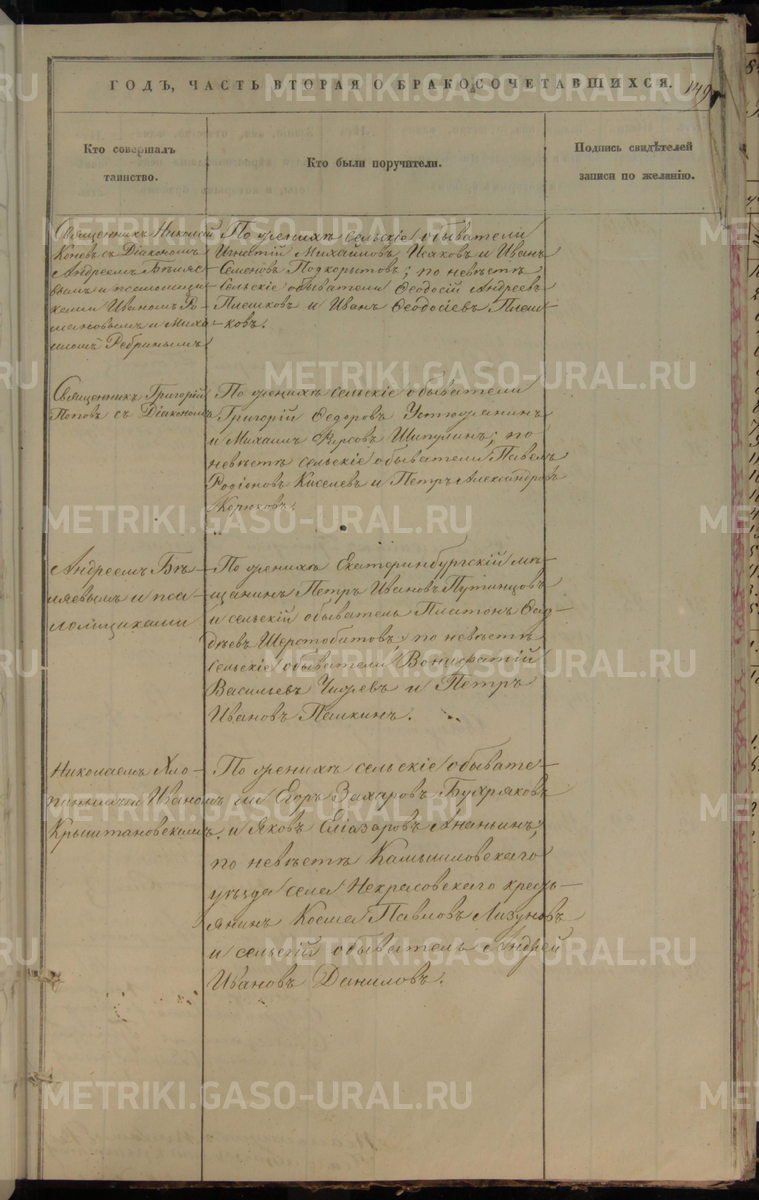 ГОДЪ, ЧАСТЬ ВТОРАЯ О БРАКОСОЧЕТАВШИХСЯ. 149
Кто совершалъ
таинство.
Кто были поручители.
Подпись свидѣтелей
записи по желанію.
Священникъ Николай
Коневъ съ Діакономъ
Андреемъ Бѣляе-
вымъ и псаломщи-
ками Иваномъ Ро-
мановымъ и Миха-
иломъ Ребринымъ
По женихѣ сельскіе обыватели
Игнатій Михайловъ Исаковъ и Иванъ
Семеновъ Подкорытовъ; по невѣстѣ
сельскіе обыватели Ѳеодосій Андреевъ
Плешковъ и Иванъ Ѳеодосіевъ Плеш-
ковъ.
Священникъ Григорій
Поповъ съ Діакономъ
По женихѣ сельскіе обыватели
Григорій Ѳедоровъ Устюжанинъ
и Михаилъ Ѳирсовъ Шипулинъ; по
невѣстѣ сельскіе обыватели Павелъ
Родіоновъ Киселевъ и Петръ Александровъ
Корюковъ.
Андреемъ Бѣ-
ляевымъ и пса-
ломщиками
По женихѣ Екатеринбургскій мѣ-
щанинъ Петръ Ивановъ Путинцовъ
и сельскій обыватель Платонъ Ѳад-
дѣевъ Шерстобитовъ; по невѣстѣ
сельскіе обыватели Вонифатій
Васильевъ и Петръ
Ивановъ Пашкинъ.
Николаемъ Хло-
пинымъ и Иваномъ
Крыштановскимъ.
По женихѣ сельскіе обывате-
ли Егоръ Захаровъ Бухряковъ
и Яковъ Еліазаровъ Ананьинъ;
по невѣстѣ Камышловскаго
уѣзда села Некрасовскаго кресть-
янинъ Косма Павловъ Лизуновъ
и сельскій обыватель Андрей
Ивановъ Даниловъ.
METRIKI.GASO-URAL.RU